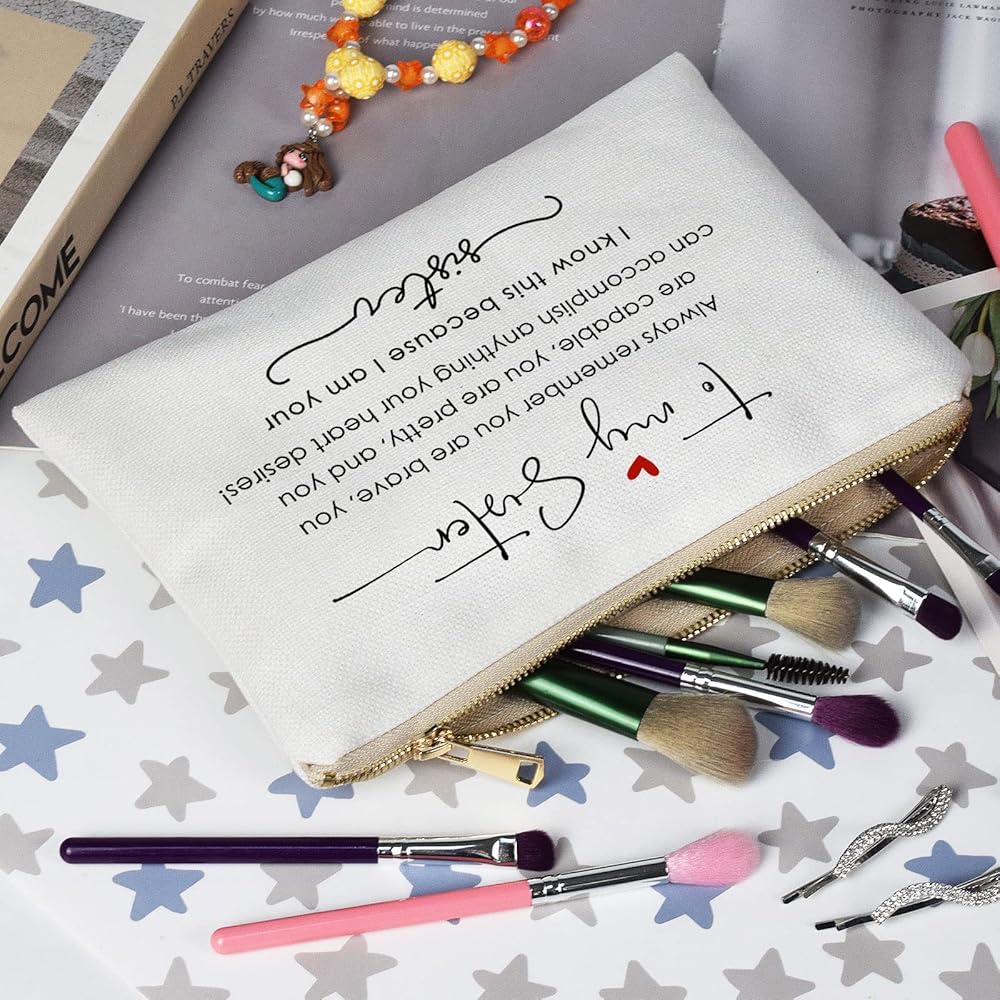 To my Sister
Always remember you are brave, you
are capable, you are pretty, and you
can accomplish anything your heart desires!
I know this because I am your
sister
P.L. TRAVERS
COME
mind is determined
by how much
able to live in the prese
Irrespe
of what happen
To combat fear
attenti
'I have been th
LOUIE LAWMAN
PHOTOGRAPHY JACK WAG